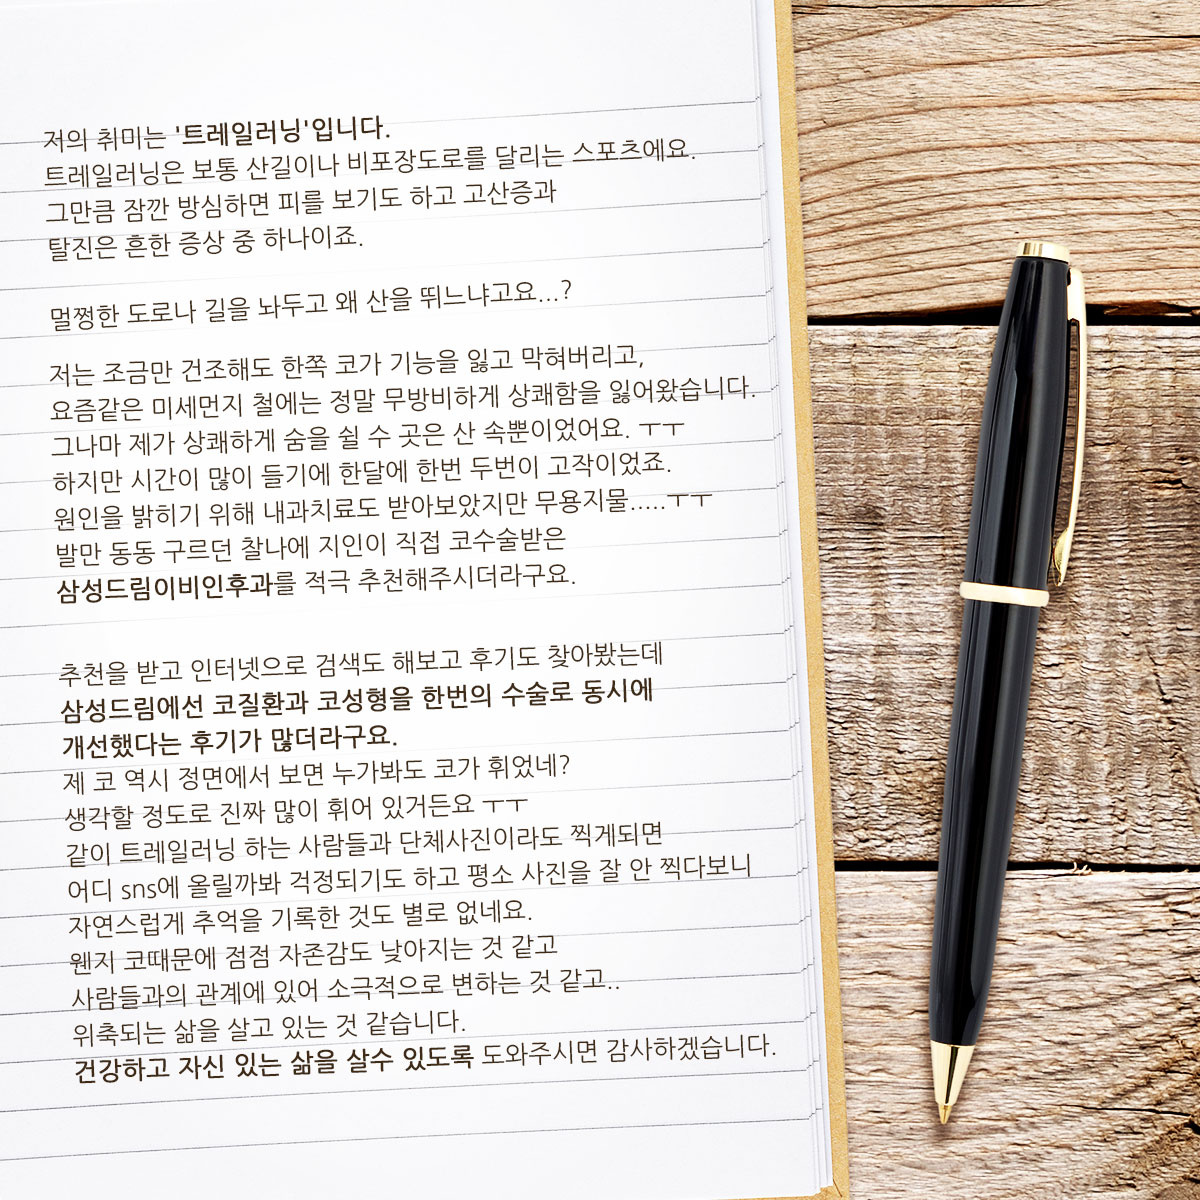 저의 취미는 '트레일러닝'입니다.
트레일러닝은 보통 산길이나 비포장도로를 달리는 스포츠에요.
그만큼 잠깐 방심하면 피를 보기도 하고 고산증과
탈진은 흔한 증상 중 하나이죠.
멀쩡한 도로나 길을 놔두고 왜 산을 뛰느냐고요...?
저는 조금만 건조해도 한쪽 코가 기능을 잃고 막혀버리고,
요즘같은 미세먼지 철에는 정말 무방비하게 상쾌함을 잃어왔습니다.
그나마 제가 상쾌하게 숨을 쉴 수 곳은 산 속뿐이었어요. ㅜㅜ
하지만 시간이 많이 들기에 한달에 한번 두번이 고작이었죠.
원인을 밝히기 위해 내과치료도 받아보았지만 무용지물.....ㅜㅜ
발만 동동 구르던 찰나에 지인이 직접 코수술받은
삼성드림이비인후과를 적극 추천해주시더라구요.
추천을 받고 인터넷으로 검색도 해보고 후기도 찾아봤는데
삼성드림에선 코질환과 코성형을 한번의 수술로 동시에
개선했다는 후기가 많더라구요.
제 코 역시 정면에서 보면 누가봐도 코가 휘었네?
생각할 정도로 진짜 많이 휘어 있거든요 ㅜㅜ
같이 트레일러닝 하는 사람들과 단체사진이라도 찍게되면
어디 sns에 올릴까봐 걱정되기도 하고 평소 사진을 잘 안 찍다보니
자연스럽게 추억을 기록한 것도 별로 없네요.
웬지 코때문에 점점 자존감도 낮아지는 것 같고
사람들과의 관계에 있어 소극적으로 변하는 것 같고..
위축되는 삶을 살고 있는 것 같습니다.
건강하고 자신 있는 삶을 살수 있도록 도와주시면 감사하겠습니다.